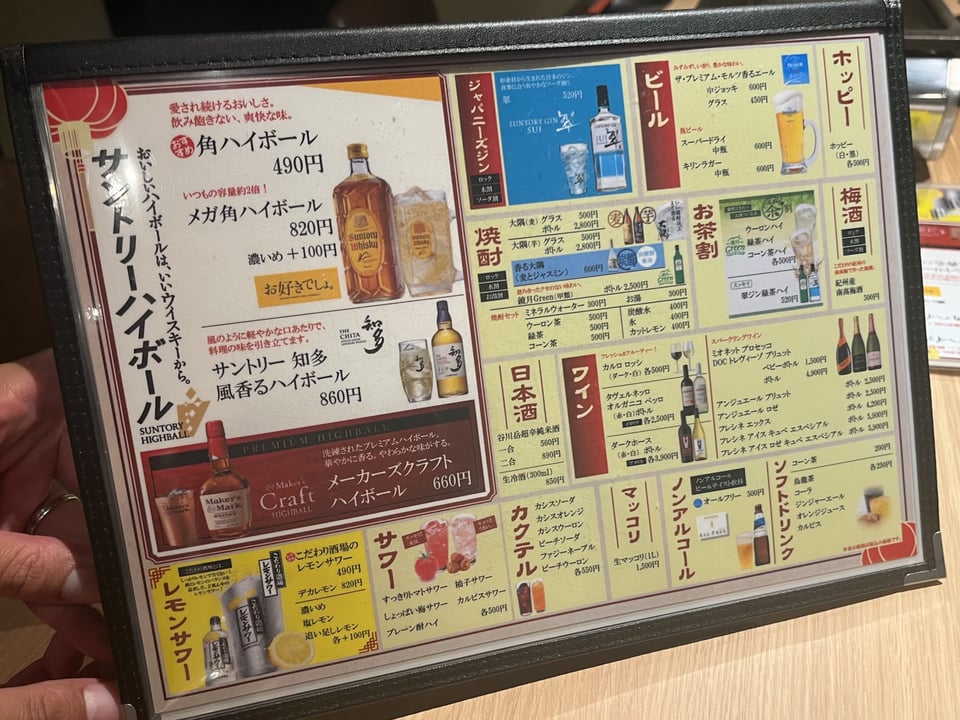 おいしいハイボールは、いいウイスキーから。
サントリーハイボール
SUNTORY
HIGHBALL
愛され続けるおいしさ。
飲み飽きない、爽快な味。
おすすめ
角ハイボール
490円
いつもの容量約2倍!
メガ角ハイボール
820円
濃いめ +100円
お好きでしょ。
Suntory
Whisky
風のように軽やかな口あたりで、
料理の味を引き立てます。
THE
CHITA
知多
サントリー 知多
風香るハイボール
860円
PREMIUM HIGHBALL
洗練されたプレミアムハイボール。
華やかに香る、やわらかな味がする。
Maker's
Mark
Maker's
Craft
HIGHBALL
メーカーズクラフト
ハイボール 660円
ジャパニーズジン
ロック
水割
ソーダ割
翠 520円
SUNTORY GIN
SUI
翠
ビール
みずみずしい香り、豊かな味わい。
ザ・プレミアム・モルツ香るエール
中ジョッキ 600円
グラス 450円
瓶ビール
スーパードライ
中瓶 600円
キリンラガー
中瓶 600円
ホッピー
ホッピー
(白・黒)
各500円
焼酎
ロック
水割
お湯割
大隅(麦) グラス 500円
ボトル 2,800円
大隅(芋) グラス 500円
ボトル 2,800円
麦
芋
香る大隅
〈麦とジャスミン〉 600円
鏡月Green(甲類) ボトル 2,500円
焼酎セット
ミネラルウォーター 300円
ウーロン茶 500円
緑茶 500円
コーン茶 500円
お湯 300円
炭酸水 400円
氷 400円
カットレモン 400円
お茶割
茶割
ウーロンハイ
緑茶ハイ
コーン茶ハイ
各500円
翠ジン緑茶ハイ
520円
梅酒
ロック
水割
ソーダ割
紀州産
南高梅酒
500円
日本酒
谷川岳超辛純米酒
一合 560円
二合 890円
生冷酒(300ml)
850円
ワイン
フレッシュ&フルーティー!
カルロ ロッシ
(ダーク・白) 各500円
タヴェルネッロ
オルガニコ ベッロ
(赤・白)ボトル
各2,500円
ダークホース
(赤・白)ボトル
各3,900円
スパークリングワイン
ミオネット プロセッコ
DOC トレヴィーゾ ブリュット
ベビーボトル 1,500円
ボトル 4,900円
アンジュエール ブリュット ボトル 2,500円
アンジュエール ロゼ ボトル 2,500円
フレシネ エックス ボトル 4,200円
フレシネ アイス キュベ エスペシアル ボトル 3,900円
フレシネ アイス ロゼ キュベ エスペシアル ボトル 3,900円
レモンサワー
こだわり酒場の
レモンサワー
490円
デカレモン 820円
濃いめ
塩レモン
追い足しレモン
各+100円
サワー
すっきりトマトサワー
柚子サワー
しょっぱい梅サワー
カルピスサワー
プレーン酎ハイ
各500円
カクテル
カシスソーダ
カシスオレンジ
カシスウーロン
ピーチソーダ
ファジーネーブル
ピーチウーロン
各550円
マッコリ
生マッコリ(1L)
1,500円
ノンアルコール
ノンアルコール
ビールテイスト飲料
オールフリー 500円
ALL-FREE
ソフトドリンク
コーン茶 200円
烏龍茶 各250円
コーラ
ジンジャーエール
オレンジジュース
カルピス